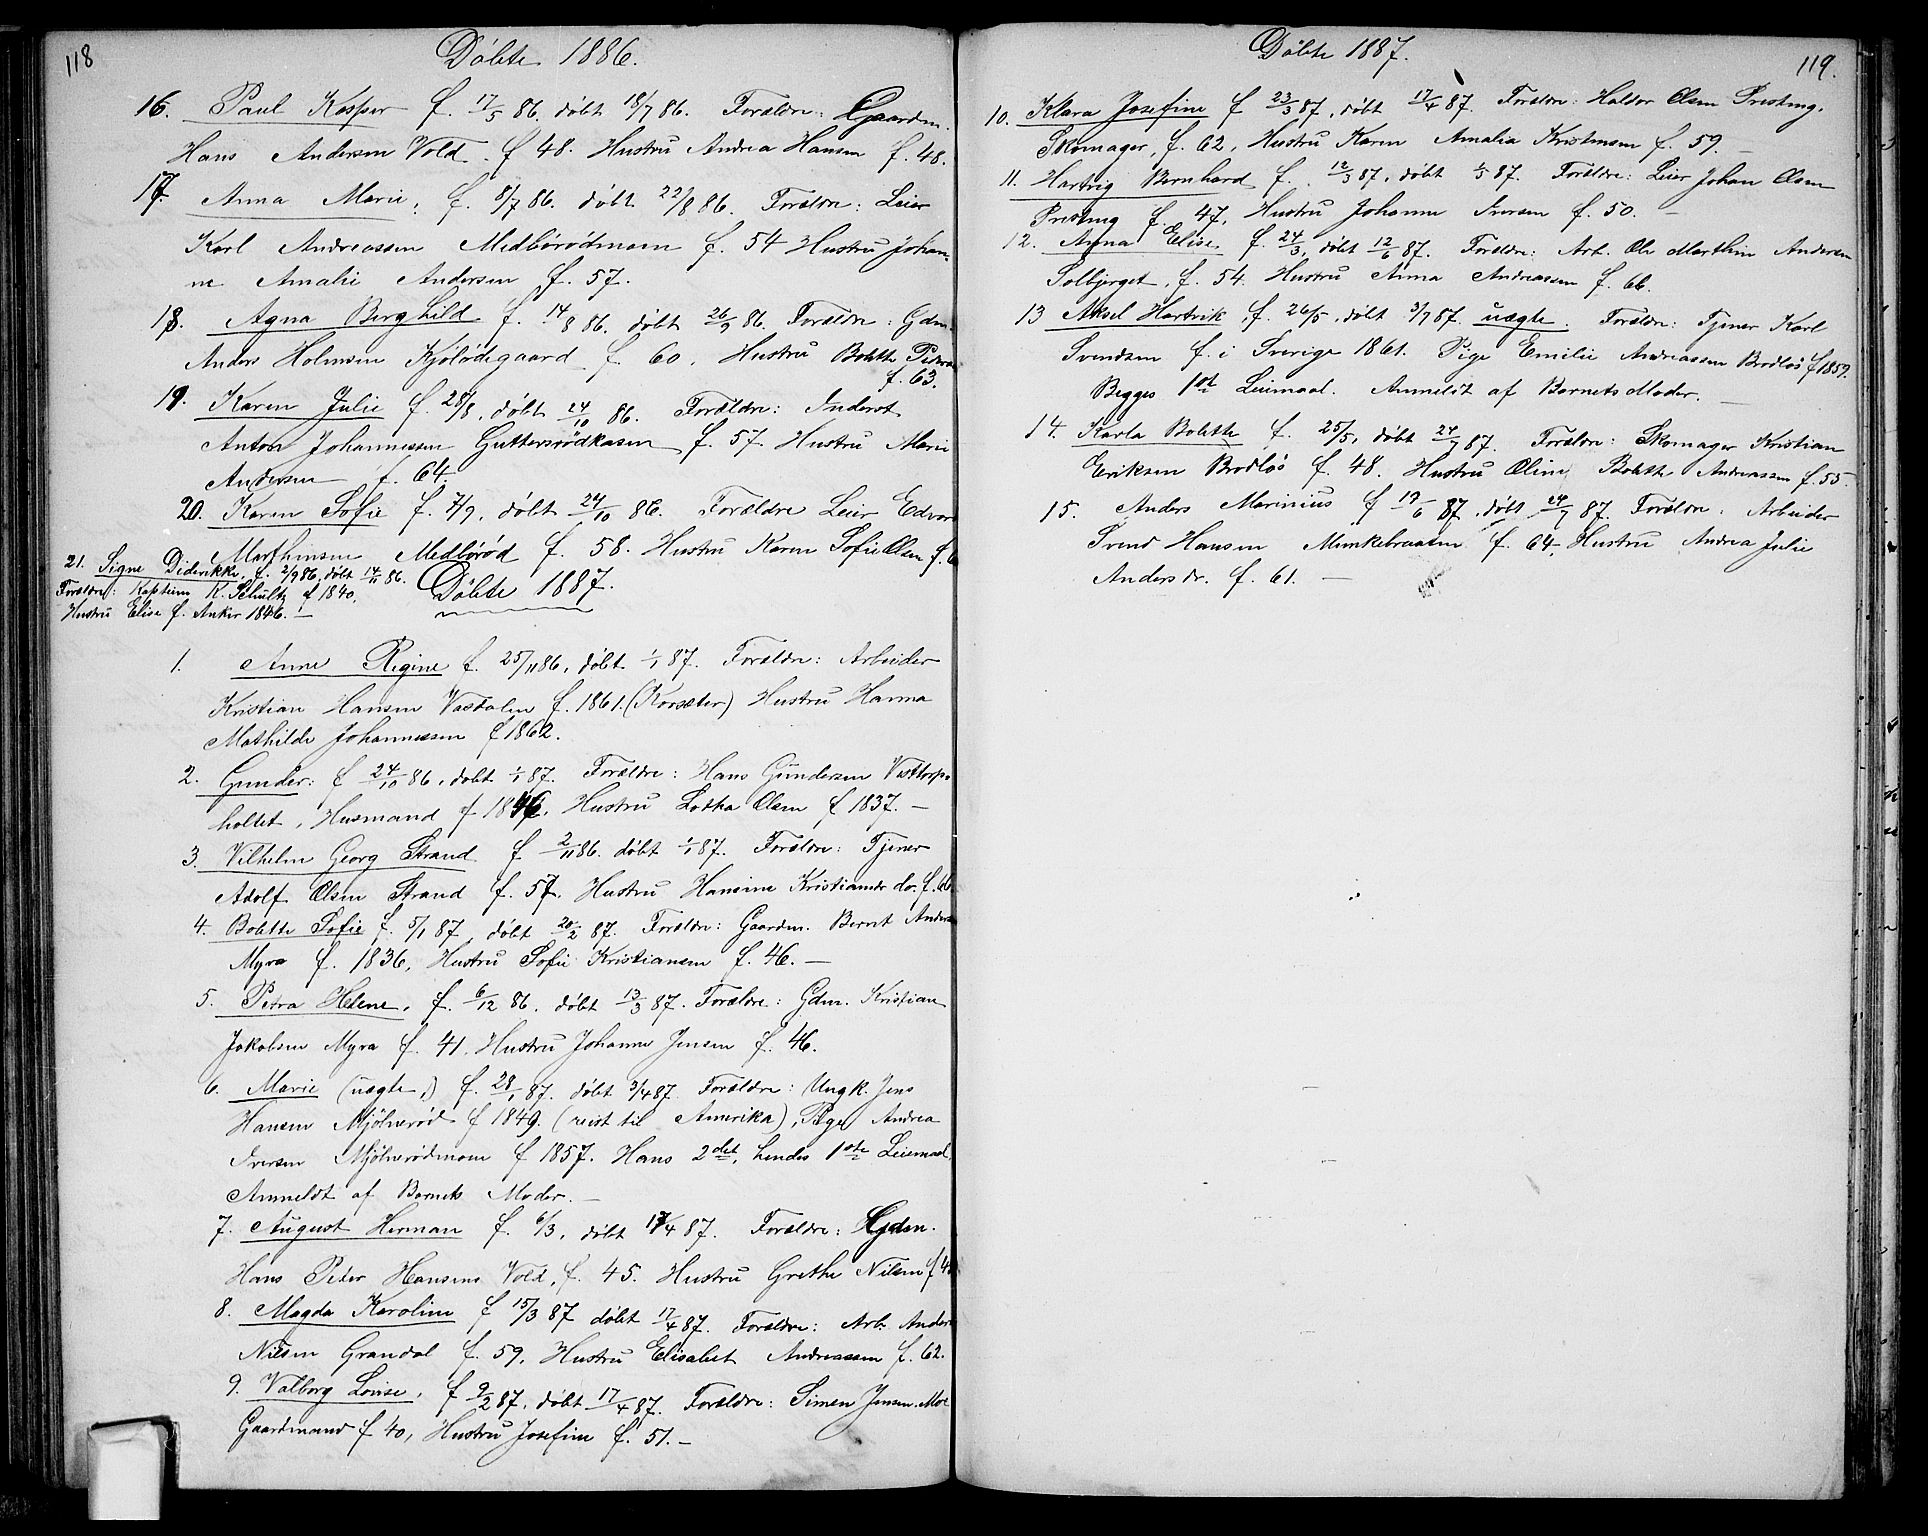 118
Döbte 1886.
16. Paul Kasper f. 17/5 86. döbt 18/7 86. Forældre: Gaardm.
Hans Andersen Vold f 48. Hustru Andrea Hansen f. 48.
17. Anna Marie, f. 8/7 86. döbt 22/8 86. Forældre: Leier
Karl Andreassen Medbörödmoen f. 54 Hustru Johan-
ne Amalie Andersen f. 57.
18. Agna Berghild f. 14/8 86. döbt 26/9 86. Forældre: Gdm.
Anders Holmsen Kjolödegaard f. 60. Hustru Bolette Peders
f. 63.
19. Karen Julie f. 28/8, döbt 24/10 86. Forældre: Inderst
Anton Johannessen Guttersrödkasen f. 57. Hustru Marie
Andersen f. 64.
20. Karen Sofie f. 7/9, döbt 24/10 86. Forældre Leier Edvar
Marthinsen Medböröd f. 58. Hustru Karen Sofie Olsen f. 6
21. Signe Diderikke f. 2/9 86, döbt 14/11 86.
Forældre: Kaptein K. Schultz f 1840.
Hustru Elise f. Anker 1846. —
Döbte 1887.
1. Anne Regine f. 25/11 86, döbt 1/1 87. Forældre: Arbeider
Kristian Hansen Vasdalen f. 1861. (Korsæter) Hustru Hanna
Mathilde Johannessen f 1862.
2. Gunder: f 24/10 86, döbt 1/1 87. Forældre: Hans Gundersen Visttorp-
holtet, Husmand f 1846, Hustru Lotha Olsen f 1837. —
3. Vilhelm Georg Strand f 2/11 86. döbt 1/1 87. Forældre: Tjener
Adolf Olsen Strand f. 57. Hustru Hansine Kristiansdr do. f. 66
4. Bolette Sofie f. 5/1 87, döbt 20/2 87. Forældre: Gaardm. Bernt Anders
Myra f. 1836, Hustru Sofie Kristiansen f. 46. —
5. Petra Helene, f. 6/12 86. döbt 13/3 87. Forældre: Gdm. Kristian
Jakobsen Myra f. 41, Hustru Johanne Jensen f. 46.
6. Marie (uægte,) f. 28/1 87. döbt 3/4 87. Forældre: Ungk. Jens
Hansen Mjölneröd f 1849. (reist til Amerika), Pige Andrea
Iversen Mjölnerödmoen f 1857. Hans 2det, hendes 1ste Leiemaal,
Anmeldt af Barnets Moder. —
7. August Herman f. 6/3, döbt 17/4 87. Forældre: Gdm.
Hans Peder Hansens Vold, f. 45. Hustru Grethe Nilsen f 4
8. Magda Karoline f 15/3 87 döbt 17/4 87. Forældre: Arb. Anders
Nilsen Grandal f. 59, Hustru Elisabet Andreassen f. 62.
9. Valborg Lovise, f 9/2 87, döbt 17/4 87. Forældre: Simen Jensen Moe
Gaardmand f 40, Hustru Josefine f. 51. —
Döbte 1887.
119.
10. Klara Josefine f 23/3 87, döbt 17/4 87. Forældre: Haldor Olsen Presteng,
Skomager, f. 62, Hustru Karen Amalia Kristensen f. 59. —
11. Hartvig Bernhard f. 12/3 87, döbt 1/5 87. Forældre: Leier Johan Olsen
Presteng f. 47, Hustru Johanne Iversen f. 50. —
12. Anna Elise f. 24/3, döbt 12/6 87. Forældre: Arb. Ole Marthin Andersen
Solbjerget, f. 54. Hustru Anna Andreassen f. 66.
13 Aksel Hartvik f. 26/5, döbt 3/7 87. uægte. Forældre: Tjener Karl
Svendsen f. i Sverige 1861. Pige Emilie Andreassen Brodlös f 1859.
Begges 1ste Leiemaal. Anmeldt af Barnets Moder. —
14. Karla Bolette f. 25/5, döbt 24/7 87. Forældre: Skomager Kristian
Eriksen Brodlös f. 48. Hustru Oline Bolette Andreassen f. 55.
15. Anders Marinius f 19/6 87, döbt 24/7 87. Forældre: Arbeider
Svend Hansen Munkebraaten f. 64 Hustru Andrea Julie
Andersdr. f. 61. —